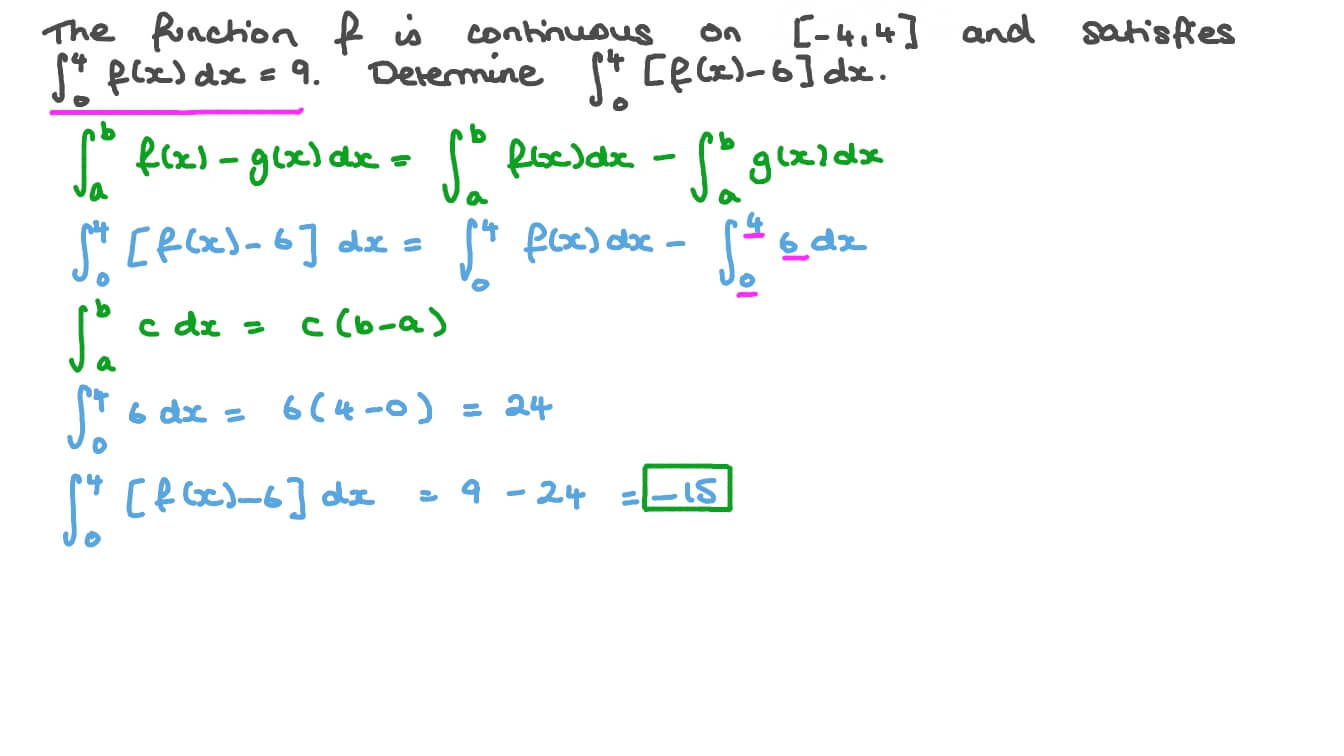 The function f is continuous on [-4,4] and satisfies
∫₀⁴ f(x) dx = 9. Determine ∫₀⁴ [f(x)-6] dx.
∫ₐᵇ f(x) - g(x) dx = ∫ₐᵇ f(x) dx - ∫ₐᵇ g(x) dx
∫₀⁴ [f(x)-6] dx = ∫₀⁴ f(x) dx - ∫₀⁴ 6 dx
∫ₐᵇ c dx = c(b-a)
∫₀⁴ 6 dx = 6(4-0) = 24
∫₀⁴ [f(x)-6] dx = 9 - 24 = -15